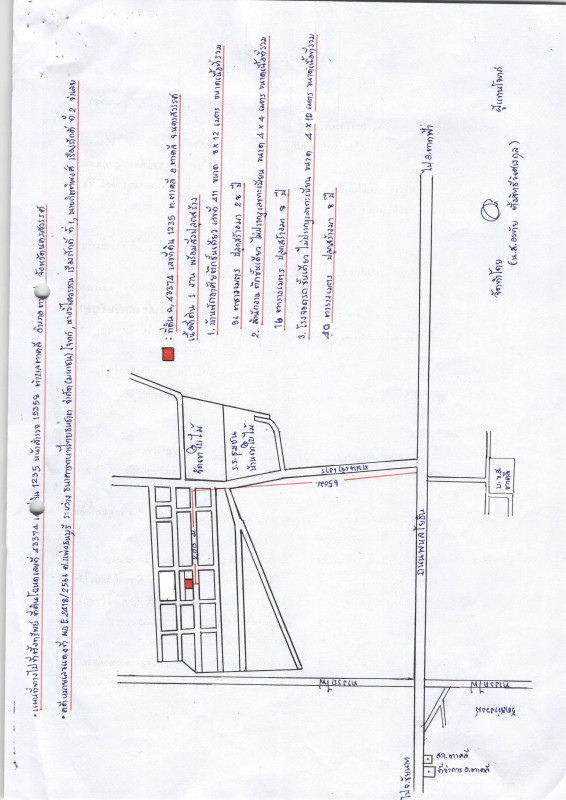 • แผนที่ทางไปที่ตั้งทรัพย์ ที่ดินโฉนดเลขที่ 43374 เลขที่ดิน 1235 หน้าสำรวจ 15358 ตำบลตาคลี อำเภอตาคลี จังหวัดนครสวรรค์
: ที่ดิน ฉ.43374 เลขที่ดิน 1235 ต.ตาคลี อ.ตาคลี จ.นครสวรรค์
เนื้อที่ดิน 1 งาน พร้อมสิ่งปลูกสร้าง
1. บ้านพักอาศัยตึกชั้นเดียว เลขที่ 411 ขนาด 8 x 12 เมตร ขนาดเนื้อที่รวม
96 ตารางเมตร ปลูกสร้างมา 8 ปี
2. สำนักงาน ตึกชั้นเดียว ไม่ปรากฏเลขทะเบียน ขนาด 4 x 4 เมตร ขนาดเนื้อที่รวม
16 ตารางเมตร ปลูกสร้างมา 8 ปี
3. โรงจอดรถ ชั้นเดียว ไม่ปรากฏเลขทะเบียน ขนาด 4 x 10 เมตร ขนาดเนื้อที่รวม
40 ตารางเมตร ปลูกสร้างมา 8 ปี
วัดเทใบไม้
ร.ร.ชุมชน
บ้านเทใบไม้
200 ม.
650ม.
ถนนพหลโยธิน
ไป อ.ตากฟ้า
ไป จ.ชัยนาท
ทางรถไฟ
ทางรถไฟ
บ.ข.ส.
ตาคลี
สภ.ตาคลี
ที่ว่าการ อ.ตาคลี
จัดทำโดย
ผู้แทนโจทก์